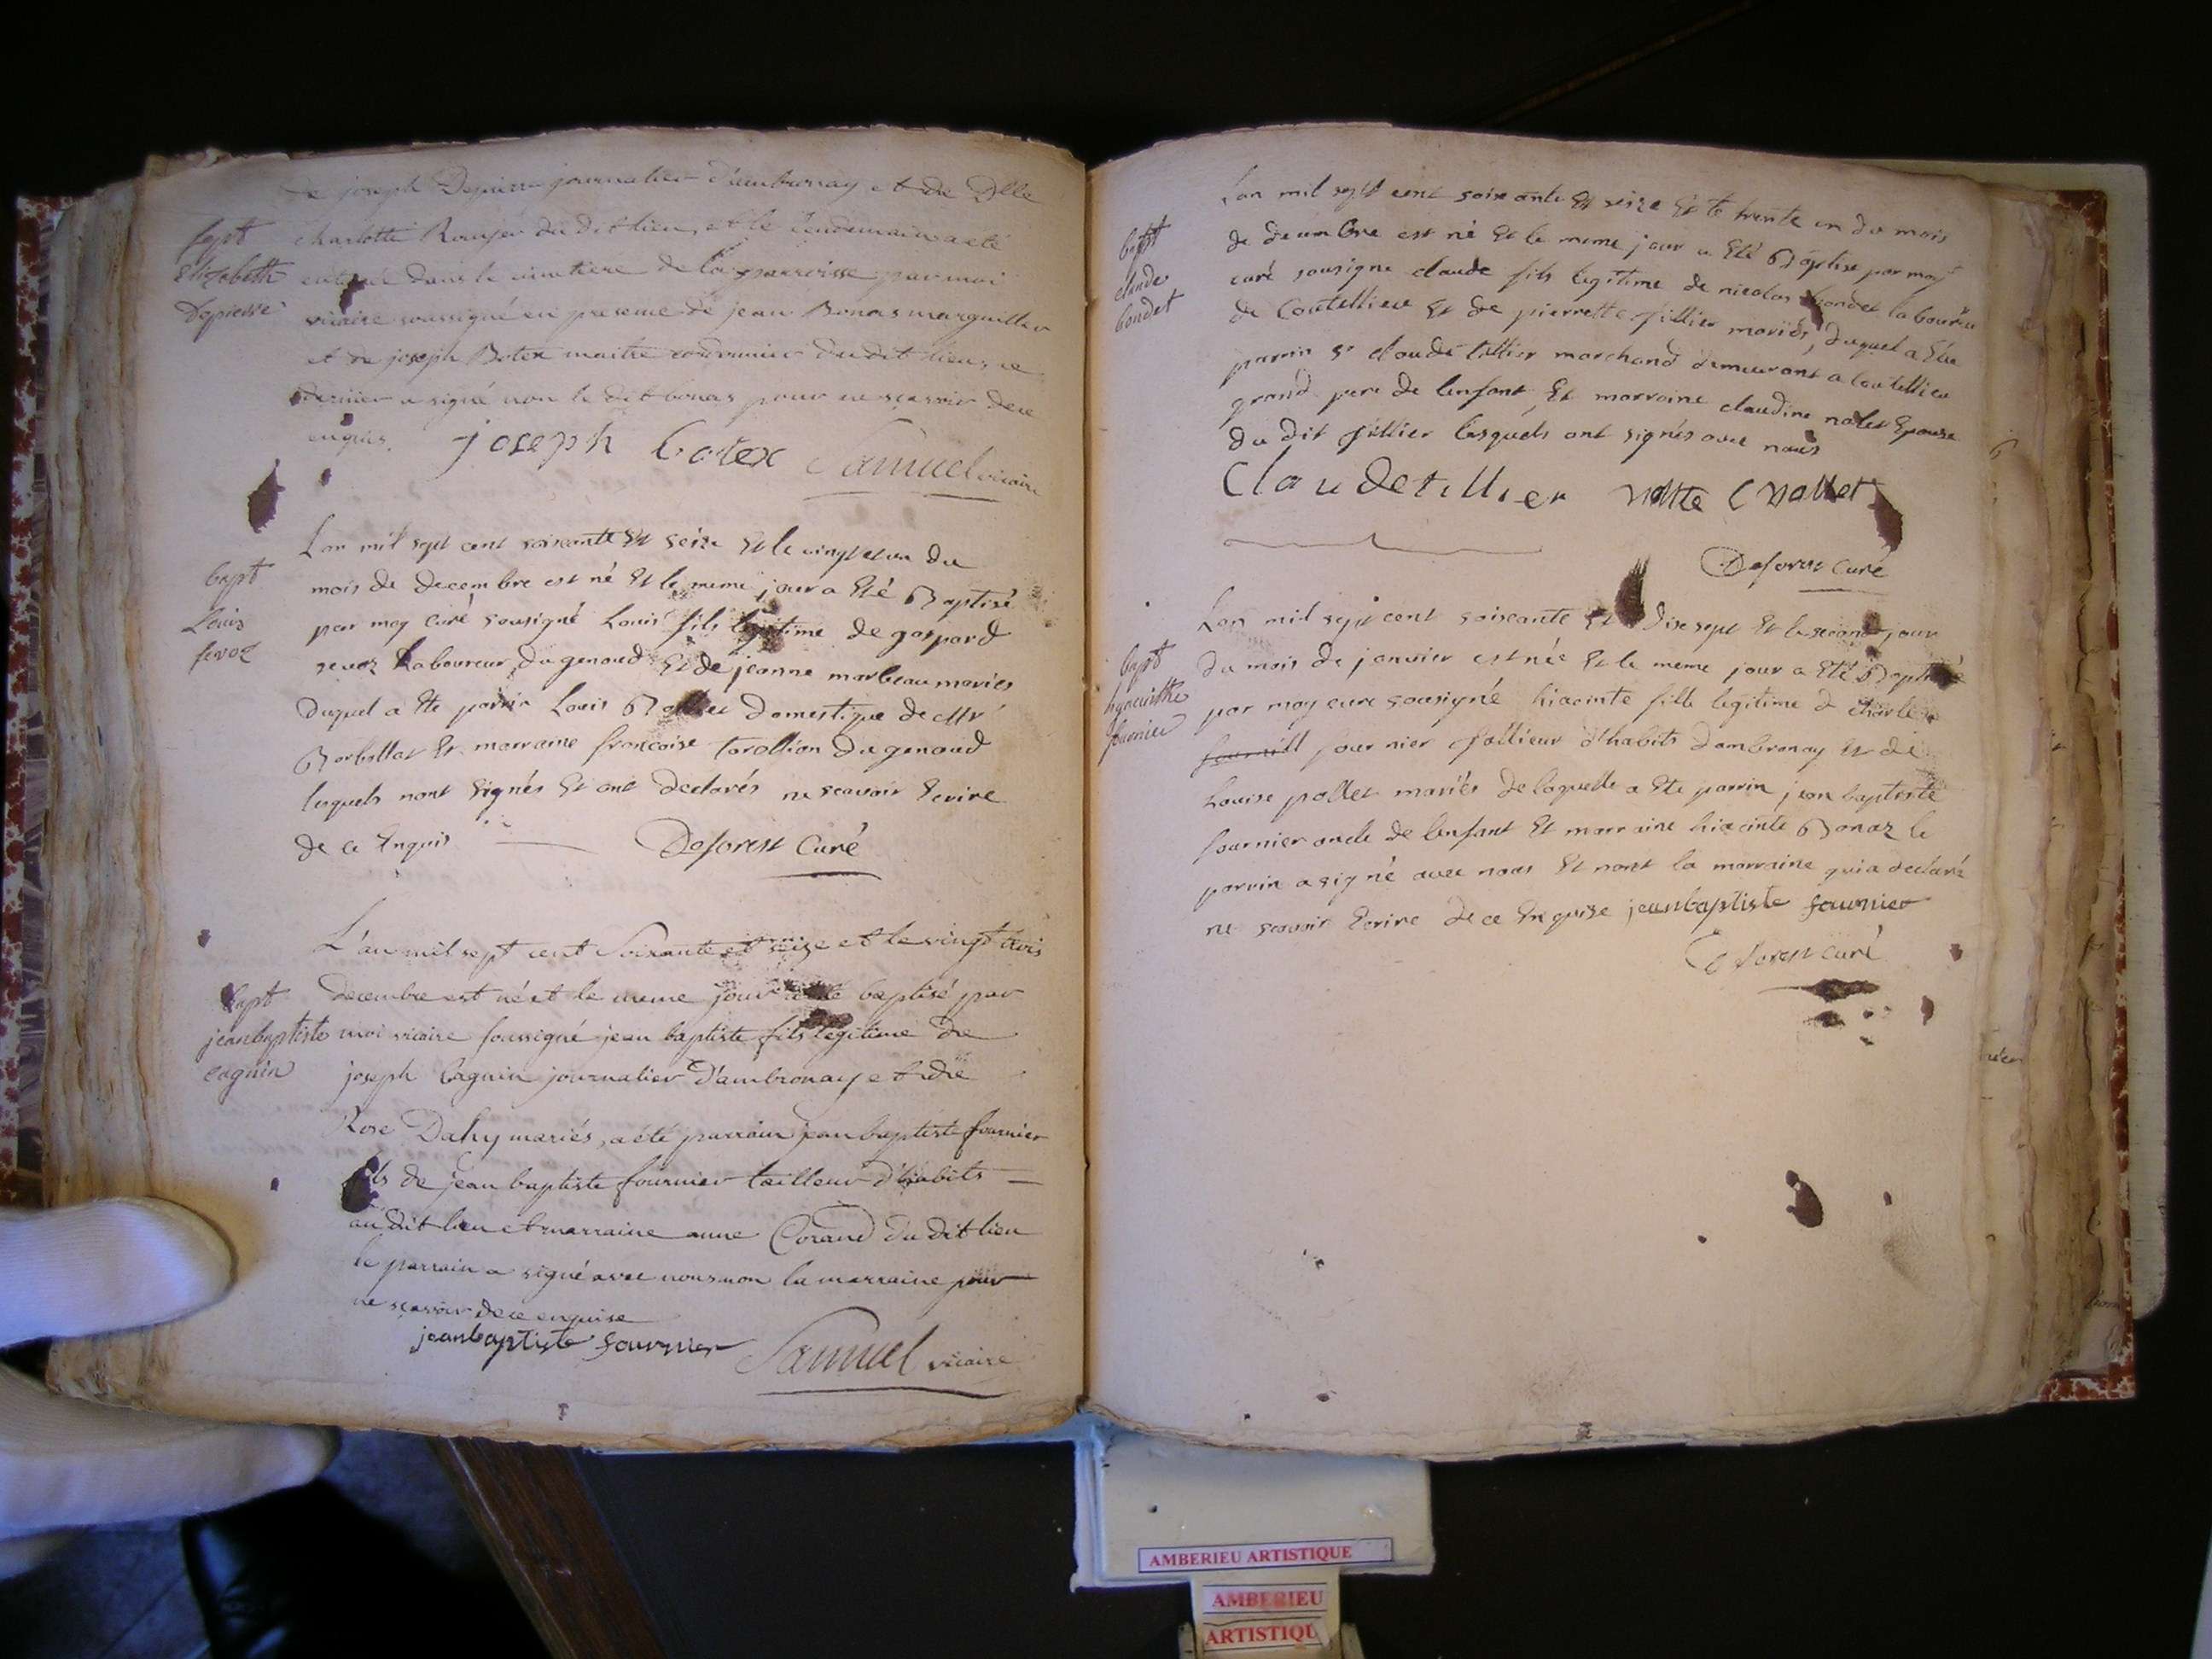 de joseph Depierre journalier d'ambronay et de Dlle
charlotte Rouyer du dit lieu, et le lendemain a eté
enterré dans le cimetiere de la parroisse par moi
vicaire soussigné en presence de jean Bonas marguiller
et de joseph Botex maitre cordonnier du dit lieu, ce
dernier a signé non le dit bonas pour ne scavoir de ce
enquis.
joseph botex Samuel vicaire
sept
Elizabeth
Depierre
bapt
Louis
sevoz
Lan mil sept cent soixante Et seize Et le vingt et un du
mois de decembre est né Et le meme jour a Eté Baptisé
par moy curé sousigné Louis fils legitime de gaspard
sevoz Laboureur du genoud Et de jeanne marbeau mariés
Duquel a Ete parrin Louis Domestique de Mr
Borbollat Et marraine francoise tarollion du genoud
lesquels nont signés Et ont declarés ne scavoir Ecrire
de ce Enquis Deforest Curé
bapt
jeanbaptiste
cagnin
L'an mil sept cent Soixante et seize et le vingt trois
decembre est né et le meme jour a été baptisé par
moi vicaire soussigné jean baptiste fils legitime de
joseph Cagnin journalier D'ambronay et de
Rose Dahy mariés, a été parrain jean baptiste fournier
fils de jean baptiste fournier tailleur d'habits
au dit lieu et marraine anne Corand du dit lieu
le parrain a signé avec nous non la marraine pour
ne scavoir de ce enquise
jeanbaptiste fournier Samuel vicaire
bapt
claude
bondet
Lan mil sept cent soixante Et seize Et le trente un du mois
de decembre est né Et le meme jour a Eté Baptise par moy
curé sousigne claude fils legitime de nicolas bondet laboureur
de Coutellieu Et de pierrette tillier mariés, duquel a Ete
parrin Sr claude tillier marchand demeurant a Coutellieu
grand pere de lenfant Et marraine claudine nallet Epouse
du dit tillier lesquels ont signés avec nous
Claude tillier C nallet
Deforest curé
bapt
hyacinthe
fournier
Lan mil sept cent soixante Et dixe sept Et le second jour
du mois de janvier est née Et le meme jour a Eté Baptisée
par moy curé sousigné hiacinte fille legitime de charle
fournill fournier tallieur d'habits d'ambronay Et de
Louise pollet mariés de laquelle a Ete parrin jean baptiste
fournier oncle de lenfant Et marraine hiacinte Bonaz le
parrin a signé avec nous Et nont la marraine qui a declaré
ne scavoir Ecrire de ce Enquise jeanbaptiste fournier
Deforest curé
AMBERIEU ARTISTIQUE
AMBERIEU
ARTISTIQU